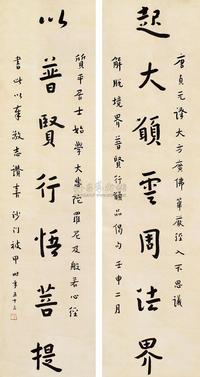 唐貞元譯大方廣佛華嚴經入不思議
起大願雲周法界
解脫境界普賢行願品偈句壬申二月
質平居士始學大悲陀羅尼及般若心經
以普賢行悟菩提
書此以奉敬志讚喜沙門被甲時年五十三